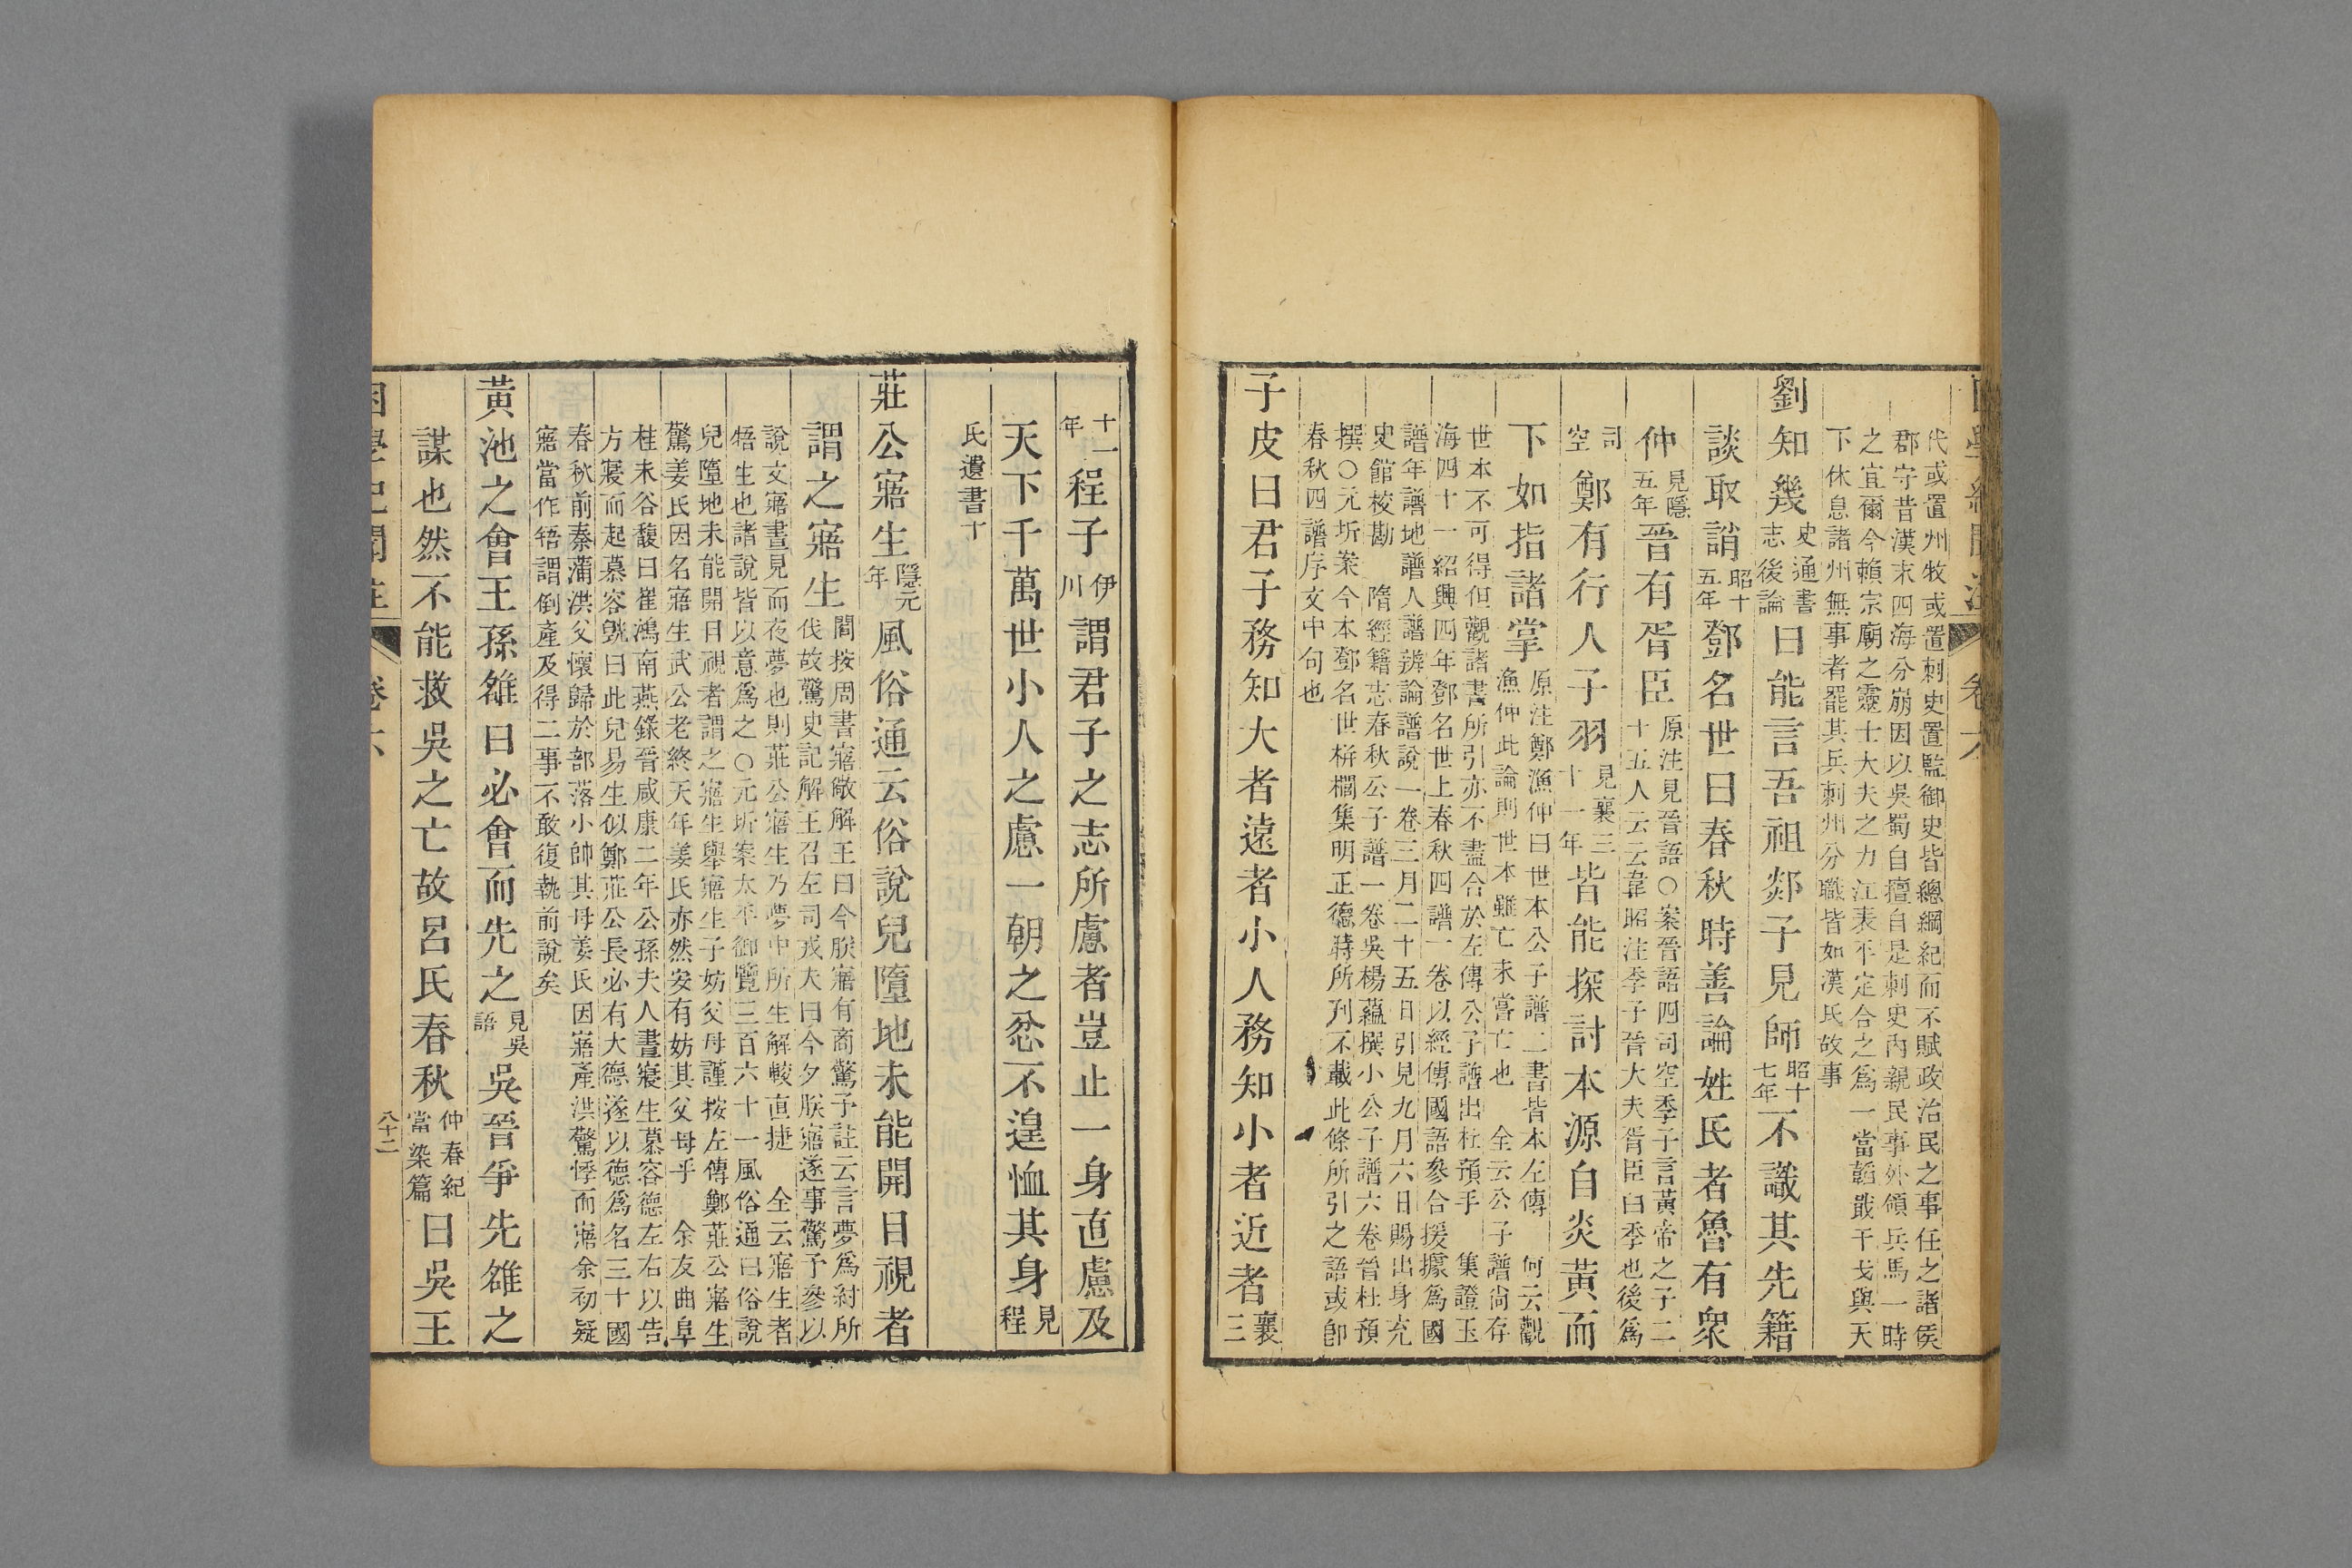 代或置州牧或置刺史置監御史皆總綱紀而不賦政治民之事任之諸侯
郡守昔漢末四海分崩因以吳蜀自擅自是刺史內親民事外領兵馬一時
之宜爾今賴宗廟之靈士大夫之力江表平定合之為一當韜戢干戈與天
下休息諸州無事者罷其兵刺州分職皆如漢氏故事
劉知幾史通書志後論曰能言吾祖郯子見師昭十七年不識其先籍
談取誚昭十五年鄧名世曰春秋時善論姓氏者魯有眾
仲見隱五年晉有胥臣原注見晉語○案晉語四司空季子言黃帝之子二十五人云云韋昭注季子晉大夫胥臣臼季也後為
司空鄭有行人子羽見襄三十一年皆能探討本源自炎黃而
下如指諸掌原注鄭漁仲曰世本公子譜二書皆本左傳 何云觀漁仲此論則世本雖亡未嘗亡也 全云公子譜尚存
世本不可得但觀諸書所引亦不盡合於左傳公子譜出杜預手 集證玉
海四十一紹興四年鄧名世上春秋四譜一卷以經傳國語參合援據為國
譜年譜地譜人譜辨論譜說一卷三月二十五日引見九月六日賜出身充
史館校勘 隋經籍志春秋公子譜一卷吳楊蘊撰小公子譜六卷晉杜預
撰○元圻案今本鄧名世栟櫚集明正德時所刋不載此條所引之語或卽
春秋四譜序文中句也
子皮曰君子務知大者遠者小人務知小者近者襄三
十一年程子伊川謂君子之志所慮者豈止一身直慮及
天下千萬世小人之慮一朝之忿不遑恤其身見程
氏遺書十
莊公寤生隱元年風俗通云俗說兒墮地未能開目視者
謂之寤生閻按周書寤儆解王曰今朕寤有商驚予註云言夢為紂所伐故驚史記解王召左司戎夫曰今夕朕寤遂事驚予參以
說文寤晝見而夜夢也則莊公寤生乃夢中所生解較直捷 全云寤生者
牾生也諸說皆以意為之○元圻案太平御覽三百六十一風俗通曰俗說
兒墮地未能開目視者謂之寤生舉寤生子妨父母謹按左傳鄭莊公寤生
驚姜氏因名寤生武公老終天年姜氏亦然安有妨其父母乎 余友曲阜
桂未谷馥曰崔鴻南燕錄晉咸康二年公孫夫人晝寢生慕容德左右以告
方寢而起慕容皝曰此兒易生似鄭莊公長必有大德遂以德為名三十國
春秋前秦蒲洪父懷歸於部落小帥其母姜氏因寤產洪驚悸而寤余初疑
寤當作牾謂倒產及得二事不敢復執前說矣
黃池之會王孫雒曰必會而先之見吳語吳晉爭先雒之
謀也然不能救吳之亡故呂氏春秋仲春紀當染篇曰吳王
八十二